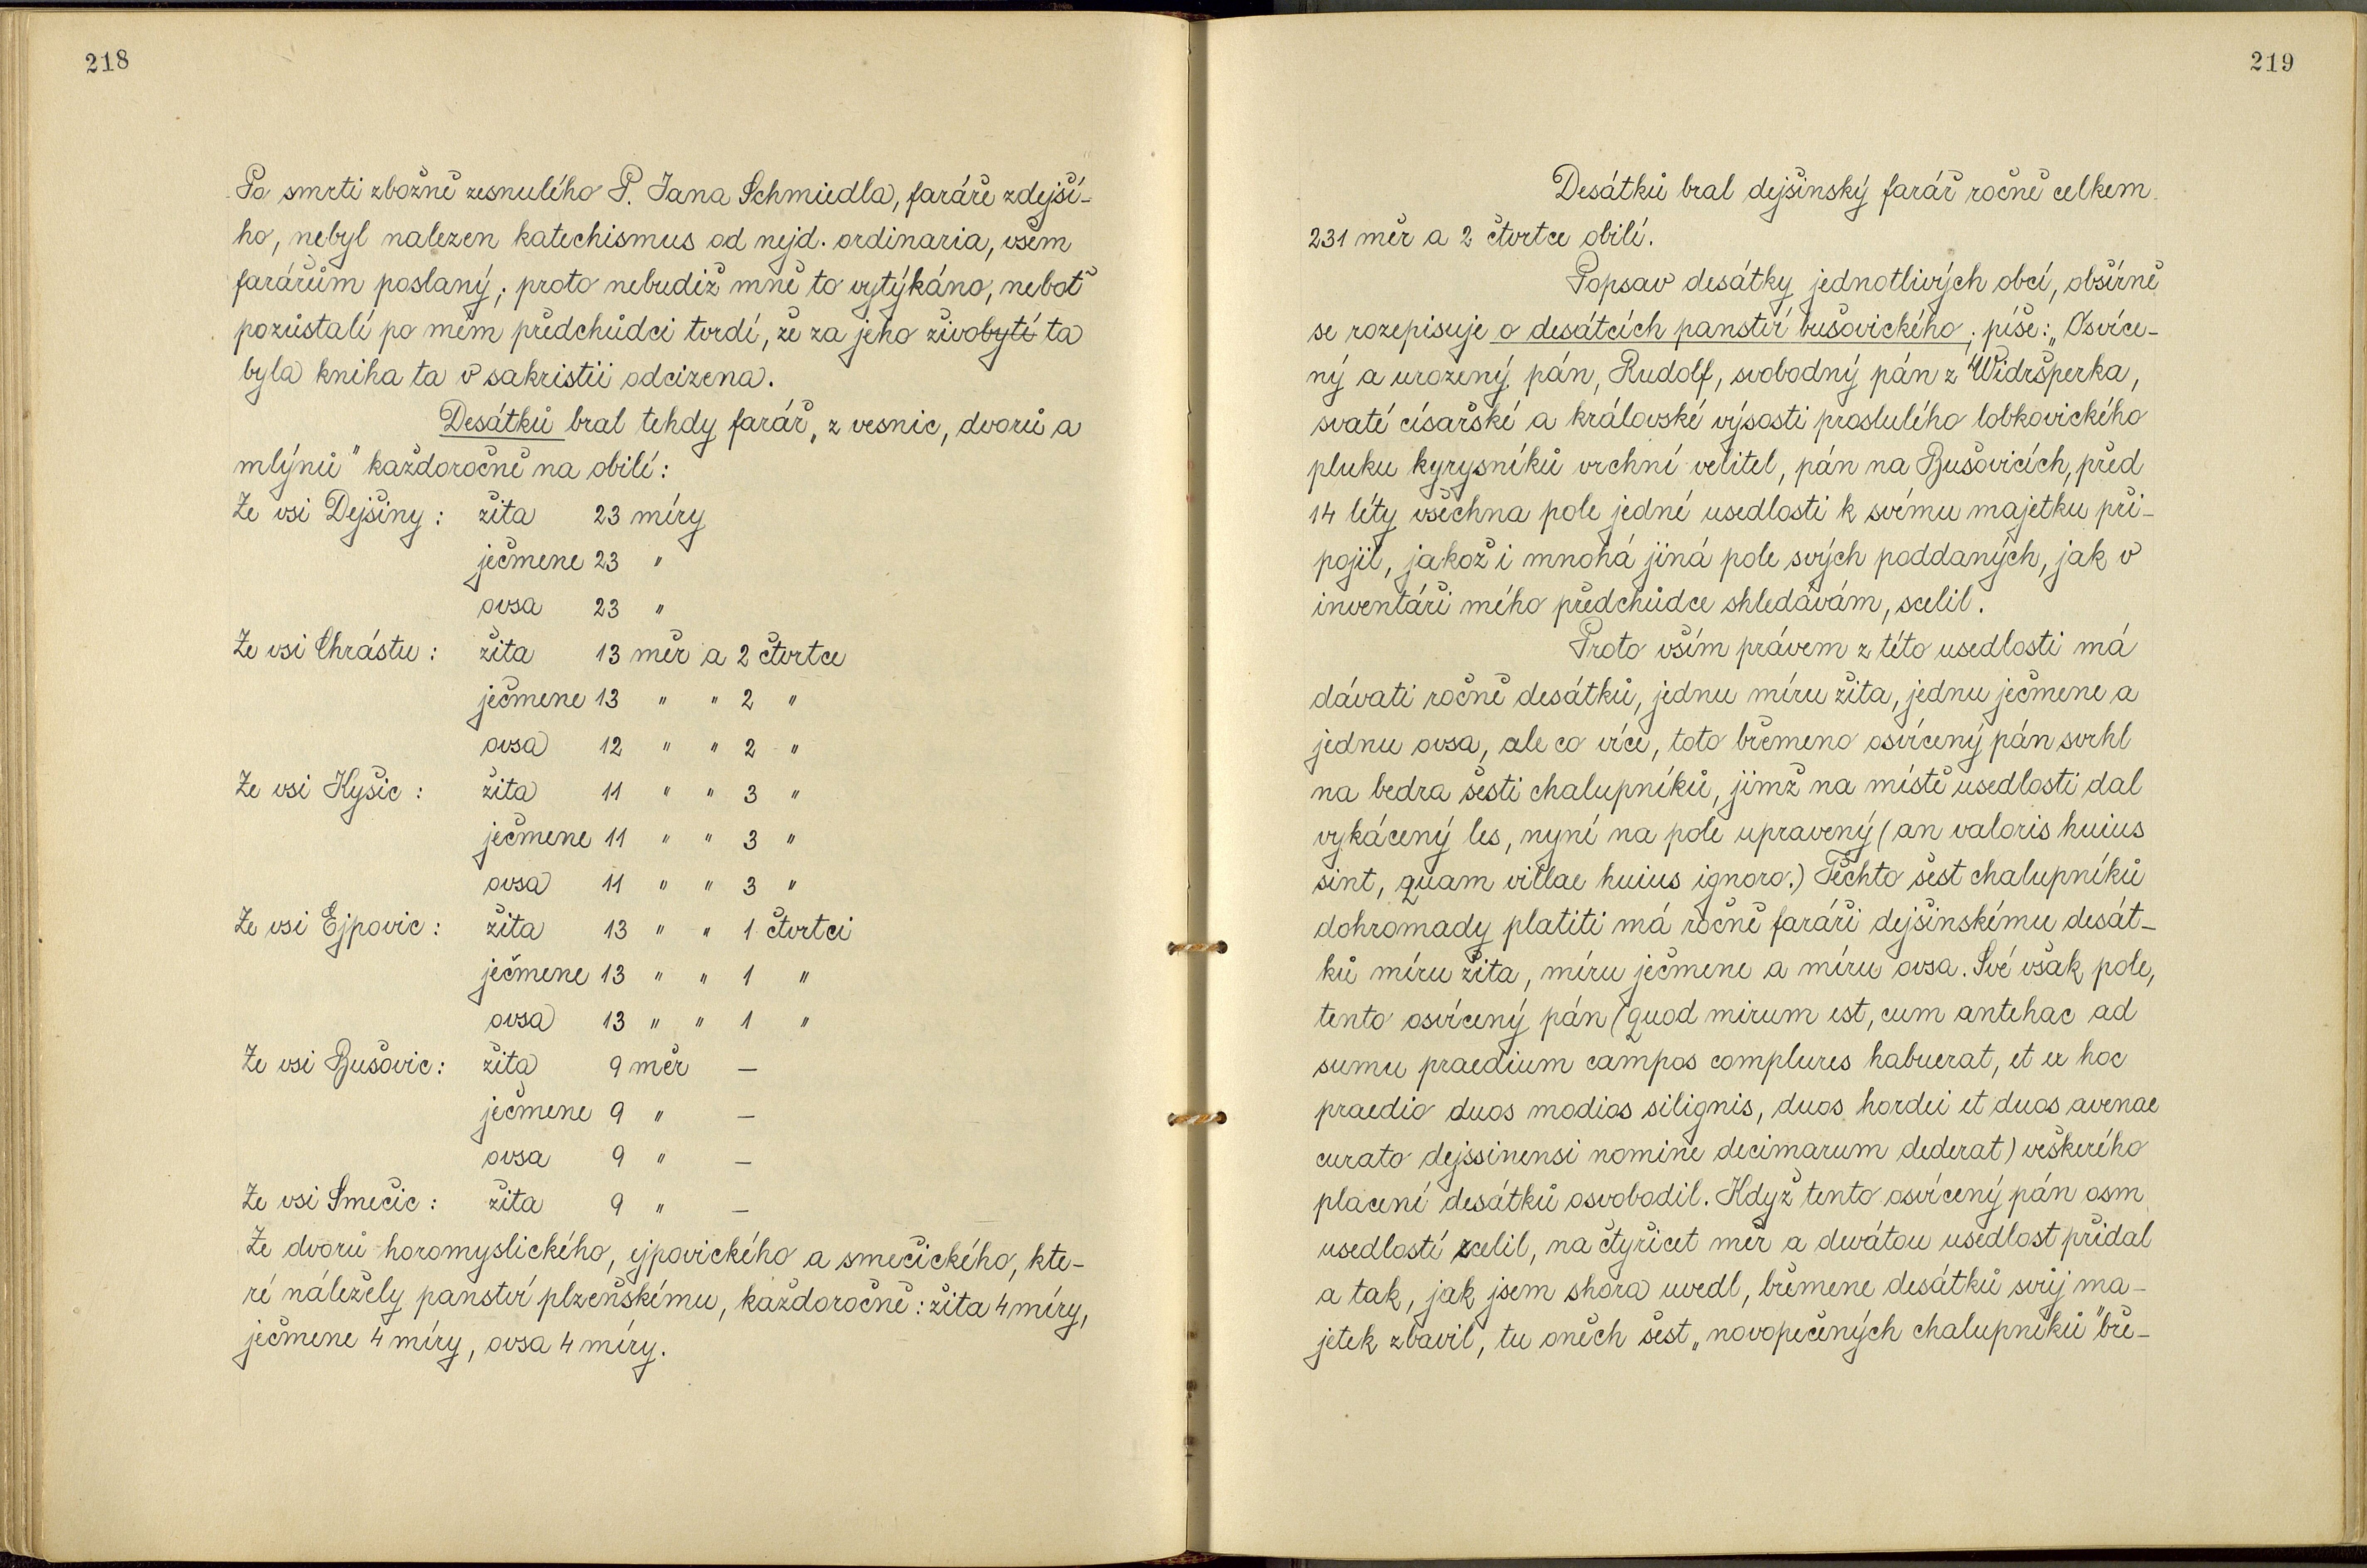 218
Po smrti zbožně zesnulého P. Jana Schmiedla, faráře zdejší-
ho, nebyl nalezen katechismus od nejd. ordinaria, všem
farářům poslaný; proto nebudiž mně to vytýkáno, neboť
pozůstalí po mém předchůdci tvrdí, že za jeho živobytí ta
byla kniha ta v sakristii odcizena.
Desátků bral tehdy farář „z vesnic, dvorů a
mlýnů" každoročně na obilí:
Ze vsi Dejšiny: žita 23 míry
ječmene 23 "
ovsa 23 "
Ze vsi Chrástu: žita 13 měr a 2 čtvrtce
ječmene 13 " " 2 "
ovsa 12 " " 2 "
Ze vsi Kyšic: žita 11 " " 3 "
ječmene 11 " " 3 "
ovsa 11 " " 3 "
Ze vsi Ejpovic: žita 13 " " 1 čtvrtci
ječmene 13 " " 1 "
ovsa 13 " " 1 "
Ze vsi Bušovic: žita 9 měr —
ječmene 9 " —
ovsa 9 " —
Ze vsi Smečic: žita 9 " —
Ze dvorů horomyslického, ejpovického a smečického, kte-
ré náležely panství plzeňskému, každoročně: žita 4 míry,
ječmene 4 míry, ovsa 4 míry.
219
Desátků bral dejšinský farář ročně celkem
231 měr a 2 čtvrtce obilí.
Popsav desátky jednotlivých obcí, obšírně
se rozepisuje o desátcích panství bušovického; píše: „Osvíce-
ný a urozený pán, Rudolf, svobodný pán z Widršperka,
svaté císařské a královské výsosti proslulého lobkovického
pluku kyrysníků vrchní velitel, pán na Bušovicích, před
14 léty všechna pole jedné usedlosti k svému majetku při-
pojil, jakož i mnohá jiná pole svých poddaných, jak v
inventáři mého předchůdce shledávám, scelil.
Proto vším právem z této usedlosti má
dávati ročně desátků, jednu míru žita, jednu ječmene a
jednu ovsa, ale co více, toto břemeno osvícený pán svrhl
na bedra šesti chalupníků, jimž na místě usedlosti dal
vykácený les, nyní na pole upravený (an valoris huius
sint, quam villae huius ignoro.) Těchto šest chalupníků
dohromady platiti má ročně faráři dejšinskému desát-
ků míru žita, míru ječmene a míru ovsa. Své však pole,
tento osvícený pán (quod mirum est, cum antehac ad
sumu praedium campos complures habuerat, et ex hoc
praedio duos modios silignis, duos hordei et duos avenae
curato dejssinensi nomine decimarum dederat) veškerého
placení desátků osvobodil. Když tento osvícený pán osm
usedlostí scelil, na čtyřicet měr a devátou usedlost přidal
a tak, jak jsem shora uvedl, břemene desátků svůj ma-
jetek zbavil, tu oněch šest „novopečených chalupníků" bře-